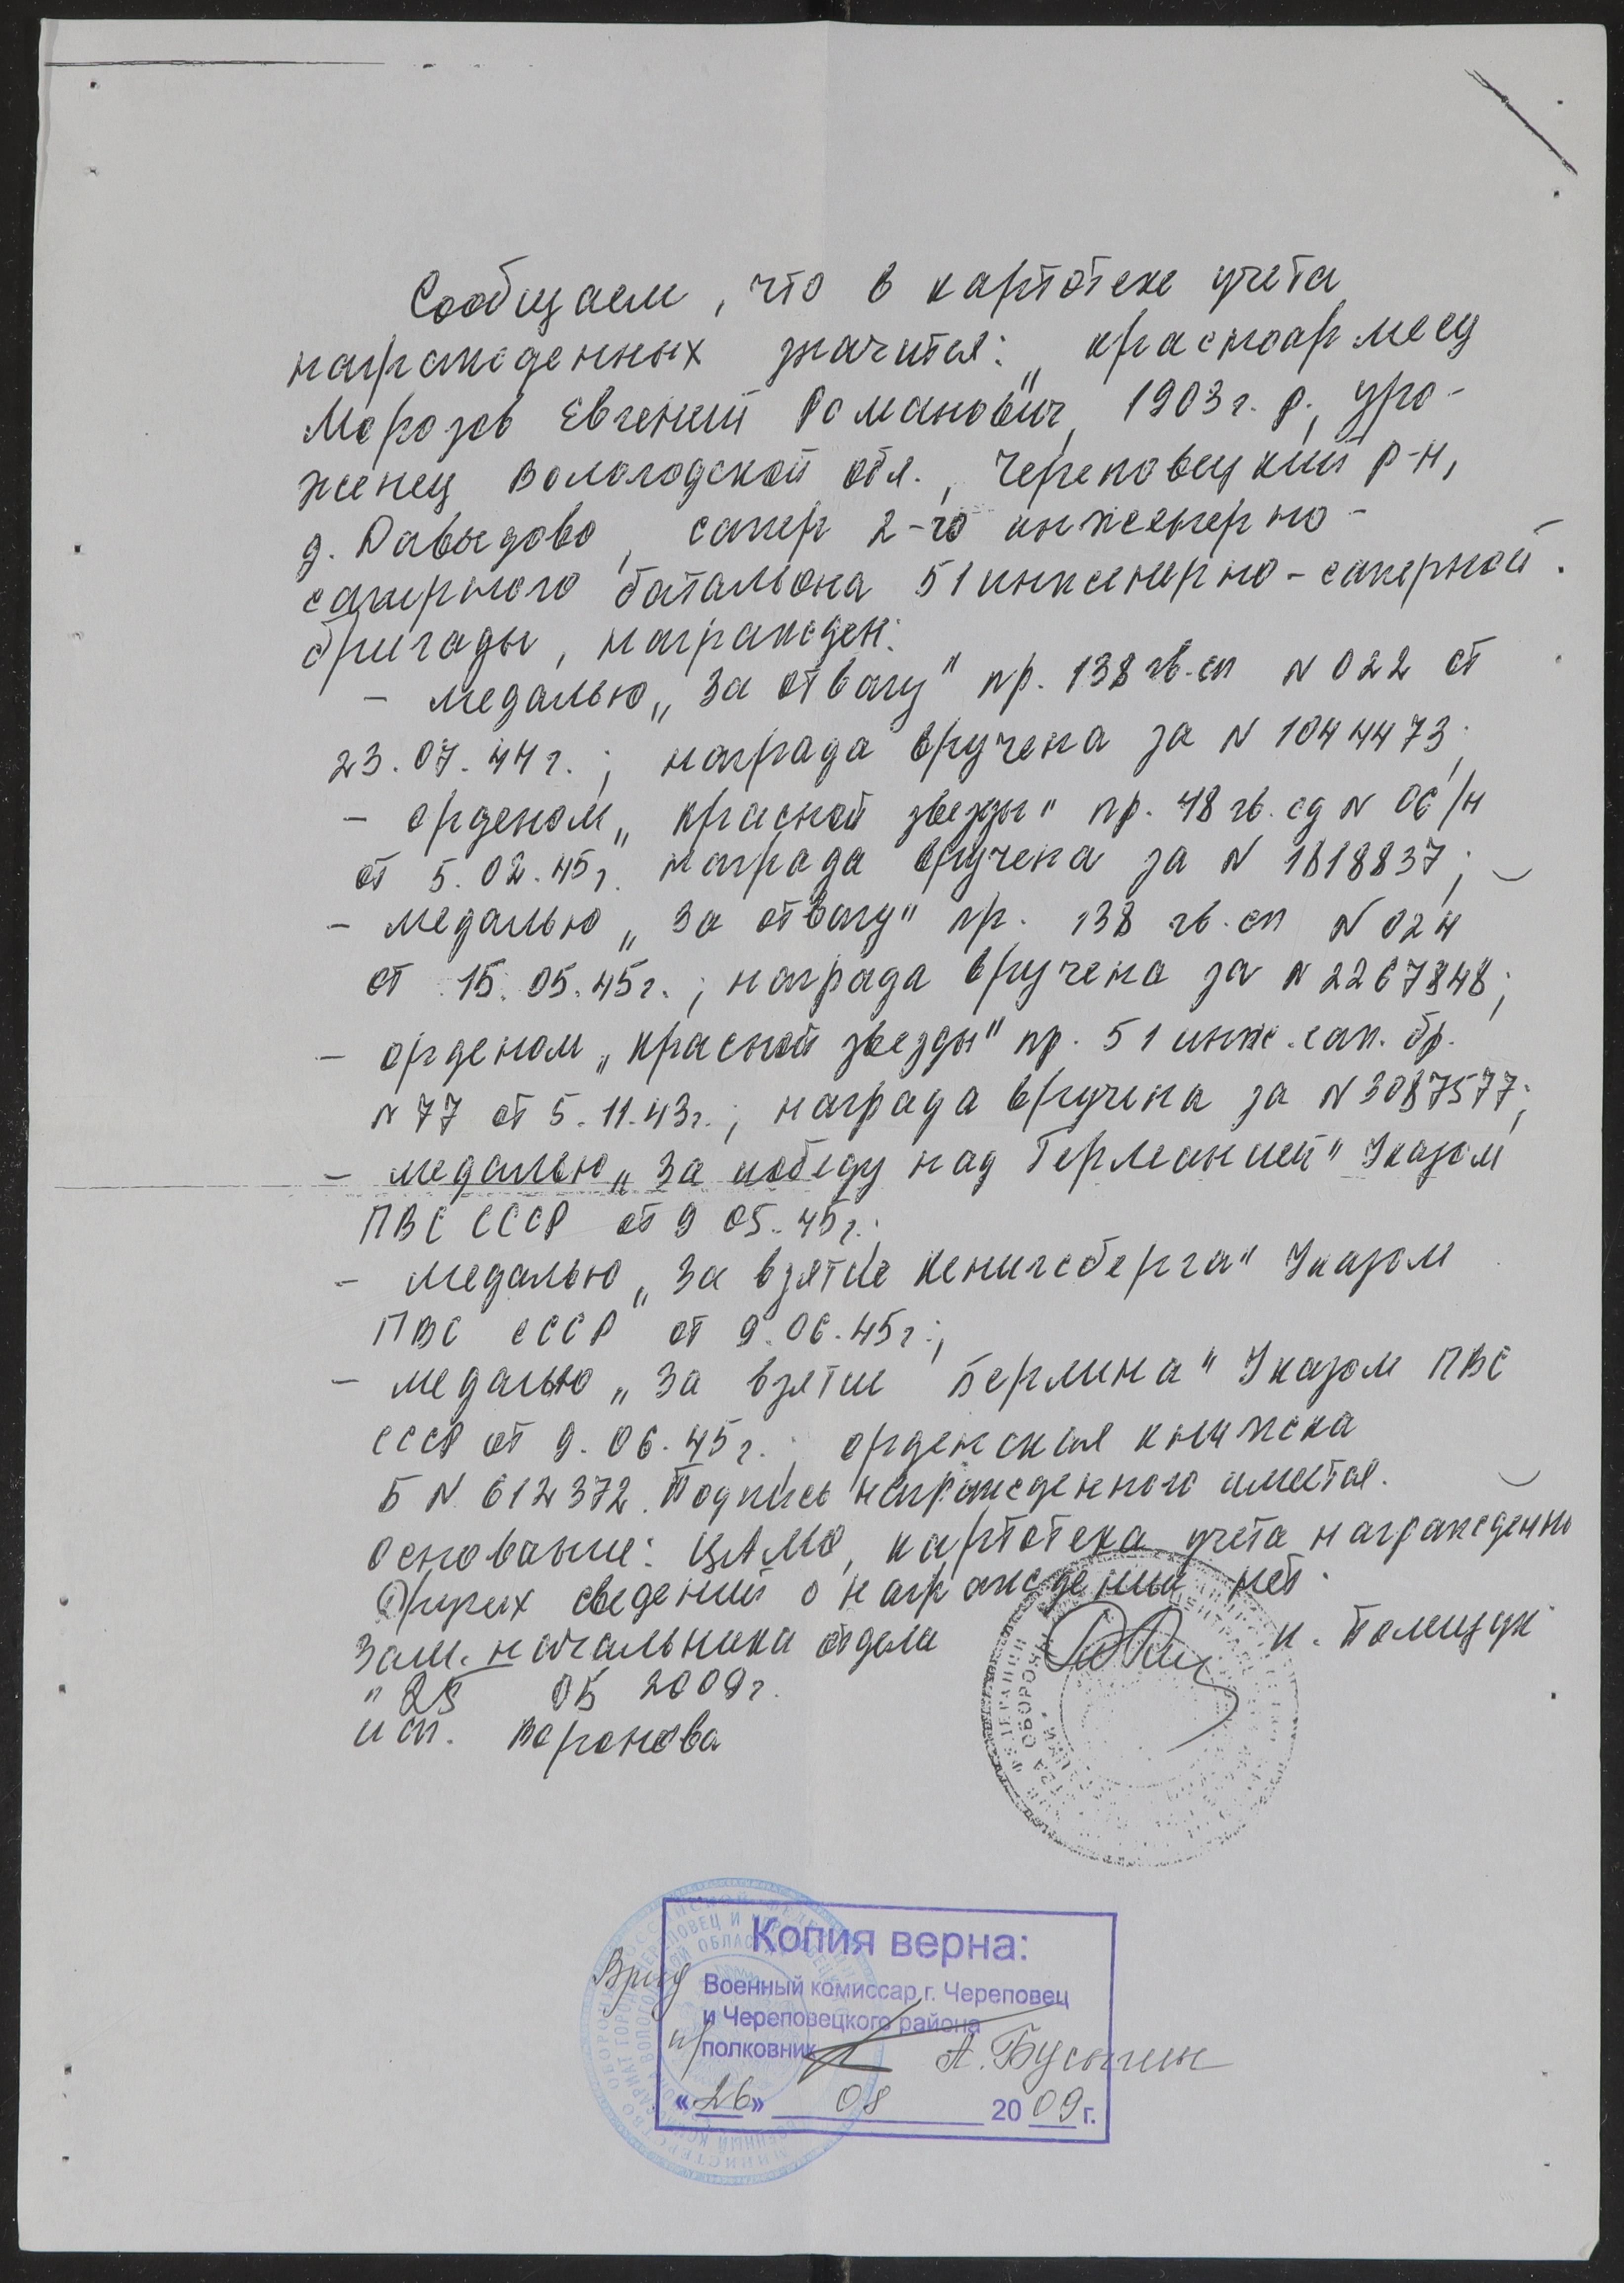 Сообщаем, что в картотеке учета
награжденных значится: „красноармеец
Морозов Евгений Романович, 1903 г. р., уро-
женец Вологодской обл., Череповецкий р-н,
д. Давыдово, сапер 2-го инженерно-
саперного батальона 51 инженерно-саперной
бригады, награжден:
– медалью „За отвагу" пр. 138 гв. сп N 022 от
23.07.44 г.; награда вручена за N 1044473;
– орденом „Красной звезды" пр. 48 гв. сд N 06/н
от 5.02.45 г. награда вручена за N 1818837;
– медалью „За отвагу" пр. 138 гв. сп N 024
от 15.05.45 г.; награда вручена за N 2267848;
– орденом „Красной звезды" пр. 51 инж. сап. бр.
N 77 от 5.11.43 г.; награда вручена за N 3087577;
– медалью „За победу над Германией" Указом
ПВС СССР от 9 05.45 г.;
– медалью „За взятие Кенигсберга" Указом
ПВС СССР от 9.06.45 г.;
– медалью „За взятие Берлина" Указом ПВС
СССР от 9.06.45 г.; орденская книжка
Б N 612372. Подпись награжденного имеется.
Основание: ЦАМО, картотека учета награжденно
Других сведений о награждении нет.
Зам. начальника отдела
" 25 05 2009 г.
исп. Воронова
Копия верна:
Врид Военный комиссар г. Череповец
и Череповецкого района
п/полковник А. Бусыгин
«26» 08 2009 г.